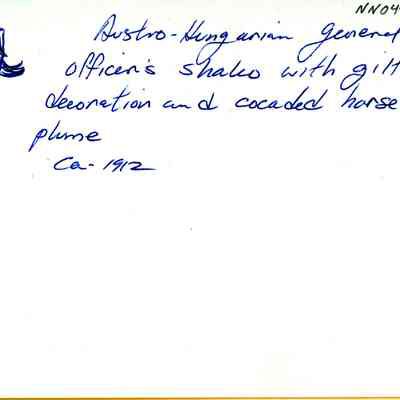 NN04
Austro-Hungarian General
officer's shako with gilt
decoration and cocaded horse
plume
Ca- 1912